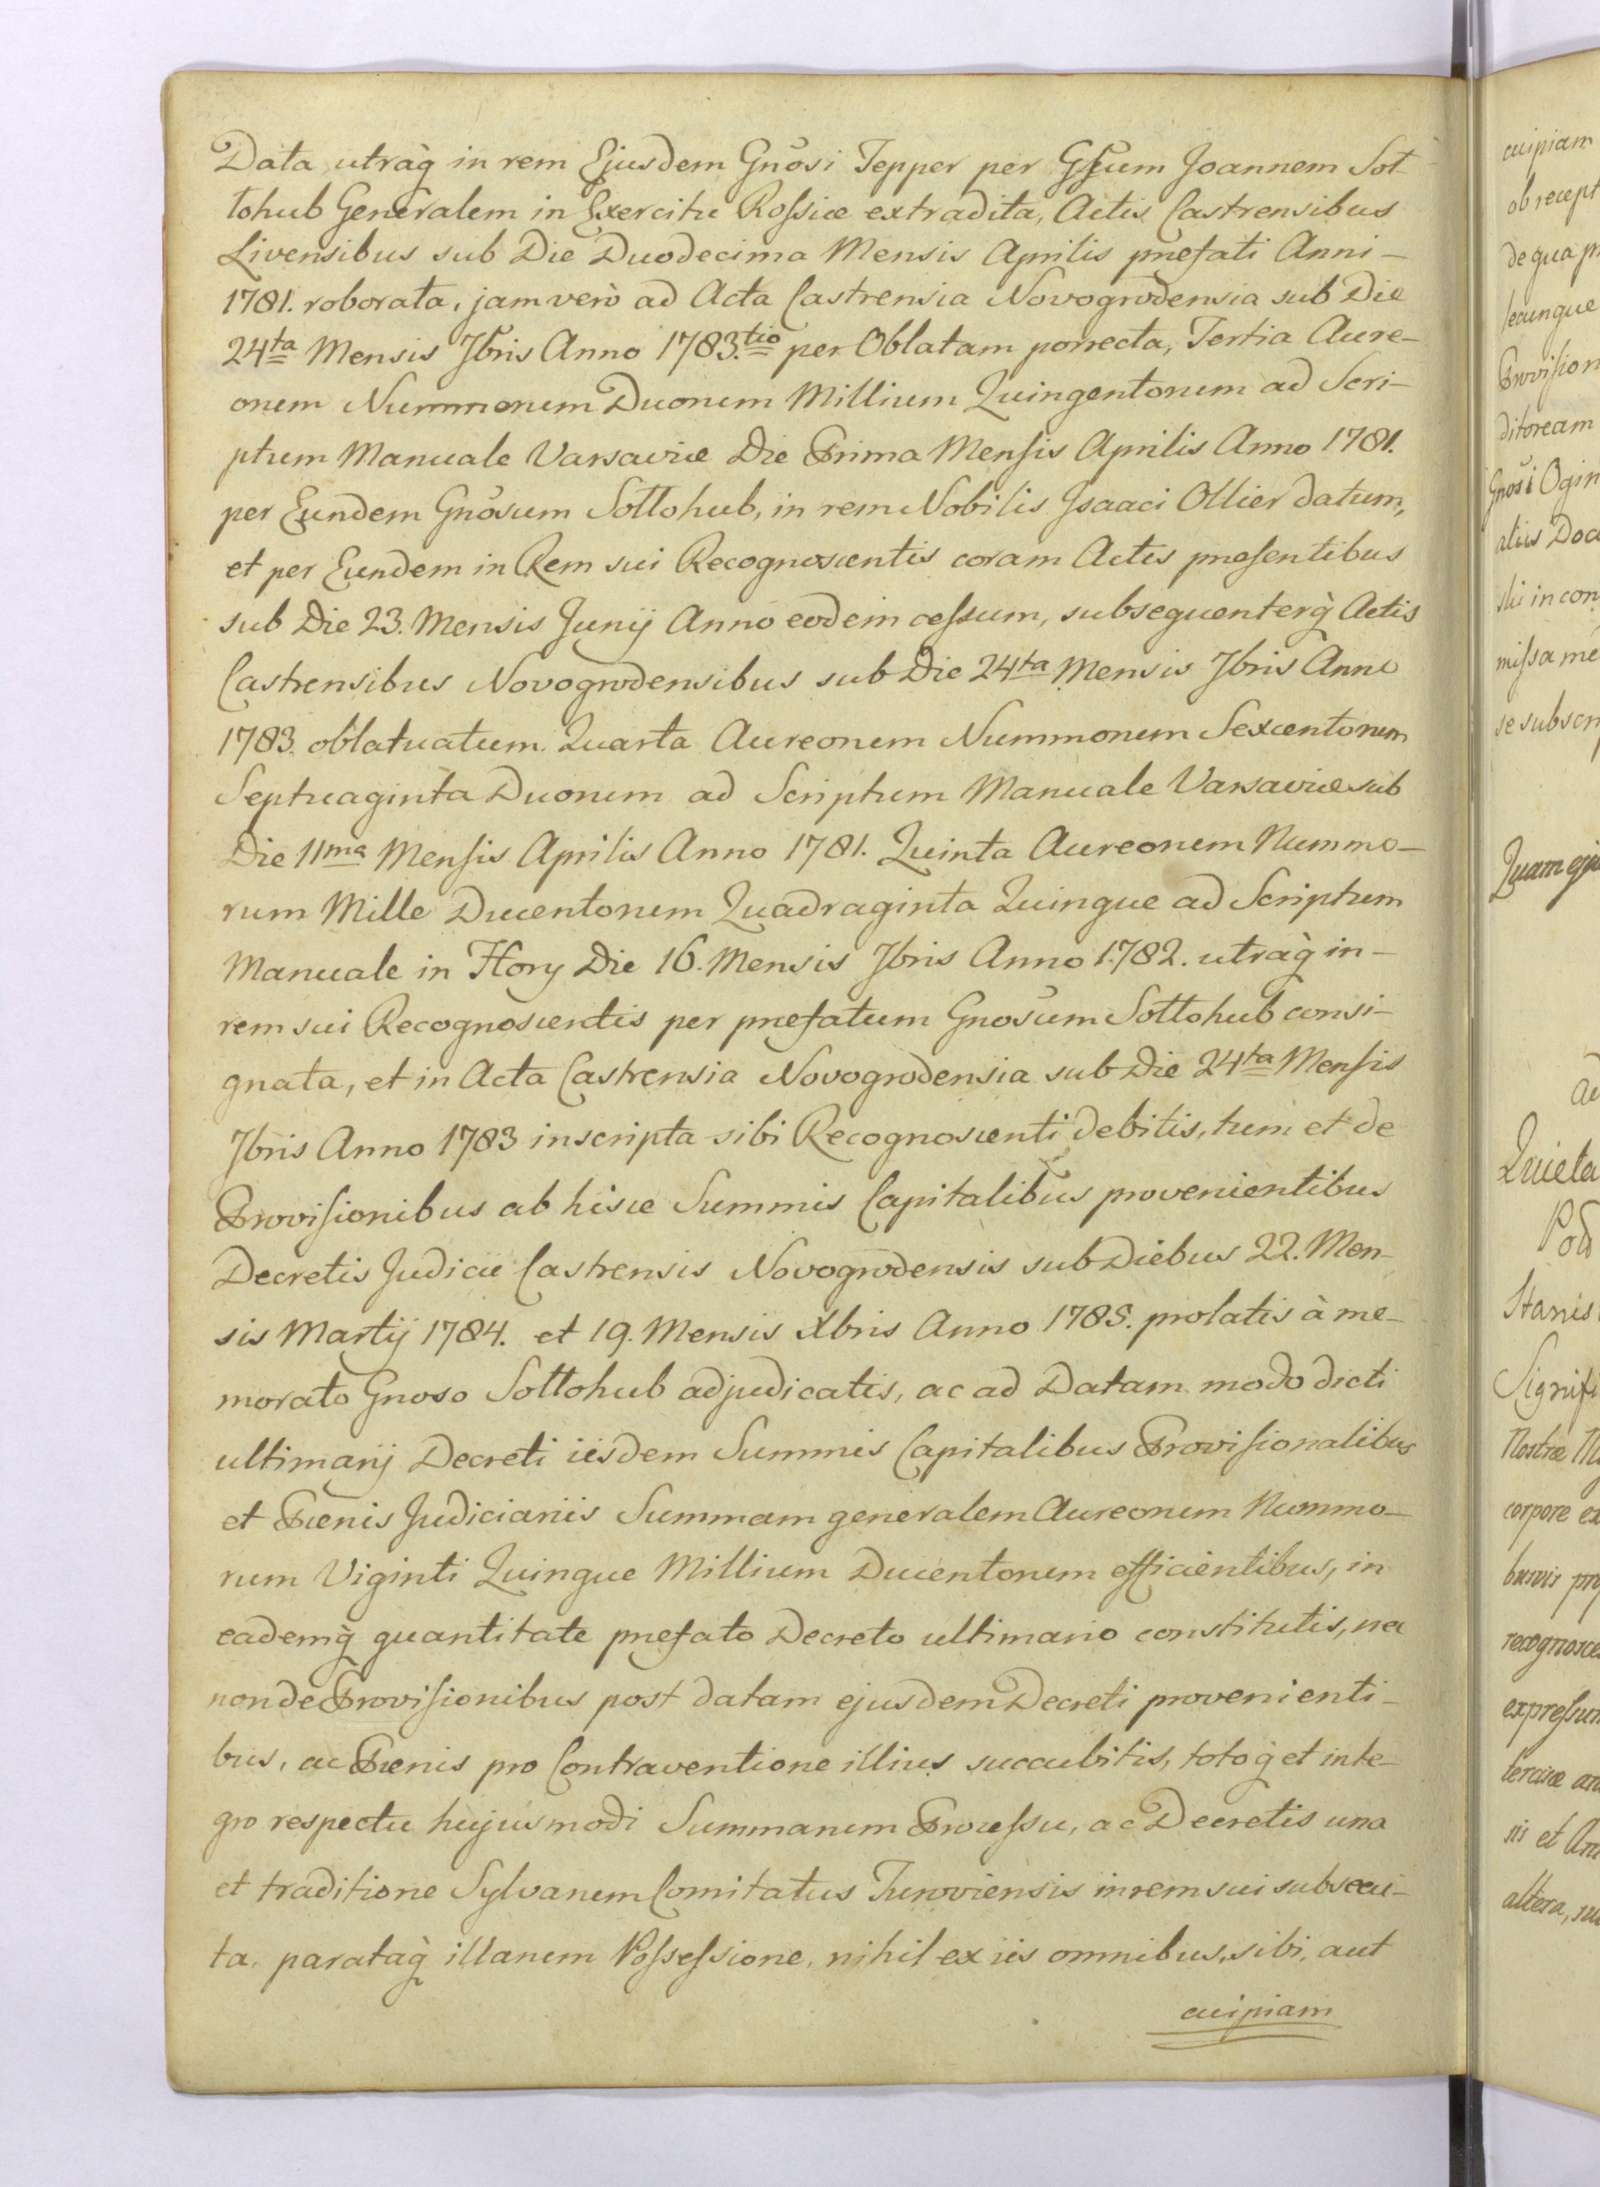 Data, utraq̀ in rem Ejusdem Gnõsi Tepper per Gnõsum Joannem Sot
tohub Generalem in Exercitu Rossiæ extradita, Actis Castrensibus
Livensibus sub Die Duodecima Mensis Aprilis præfati Anni –
1781. roborata, jam verò ad Acta Castrensia Novogrodensia sub Die
24ta Mensis 7bris Anno 1783.tio per Oblatam porrecta, Tertia Aure-
orum Nummorum Duorum Millium Quingentorum ad Scri-
ptum Manuale Varsaviæ Die Prima Mensis Aprilis Anno 1781.
per Eundem Gnõsum Sottohub, in rem Nobilis Isaaci Ollier datum,
et per Eundem in Rem sui Recognoscentis coram Actis præsentibus
sub Die 23. Mensis Junij Anno eodem cessum, subsequenterq̀ Actis
Castrensibus Novogrodensibus sub Die 24ta Mensis 7bris Anno
1783. oblatuatum. Quarta Aureorum Nummorum Sexcentorum
Septuaginta Duorum ad Scriptum Manuale Varsaviæ sub
Die 11ma Mensis Aprilis Anno 1781. Quinta Aureorum Nummo-
rum Mille Ducentorum Quadraginta Quinque ad Scriptum
Manuale in Hory Die 16. Mensis 7bris Anno 1782. utraq̀ in –
rem sui Recognoscentis per præfatum Gnosum Sottohub consi-
gnata, et in Acta Castrensia Novogrodensia sub Die 24ta Mensis
7bris Anno 1783 inscripta sibi Recognoscenti debitis, tum et de
Provisionibus ab hisce Summis Capitalibus provenientibus
Decretis Judicii Castrensis Novogrodensis sub Diebus 22. Men-
sis Martij 1784. et 19. Mensis Xbris Anno 1785. prolatis à me-
morato Gnoso Sottohub adjudicatis, ac ad Datam modo dicti
ultimarij Decreti iisdem Summis Capitalibus Provisionalibus
et Pœnis Judiciariis Summam generalem Aureorum Nummo-
rum Viginti Quinque Millium Ducentorum efficientibus, in
eademq̀ quantitate præfato Decreto ultimario constitutis, nec
non de Provisionibus post datam ejusdem Decreti provenienti-
bus, ac Pœnis pro Contraventione illius succubitis, totoq̀ et inte-
gro respectu hujusmodi Summarum Processu, ac Decretis una
et traditione Sylvarum Comitatus Turoviensis in rem sui subsecu-
ta, parataq̀ illarum Possessione, nihil ex iis omnibus, sibi, aut
cuipiam
cuipiam
ob recept
de qua
Provision
ditoream
Gnosi Ogin
aliis Doc
in con
missa
se subscr
Quam eju
Quieta
Stanis
Signifi
Nostræ
corpore ex
recognosce
expressum
sis et An
altera,